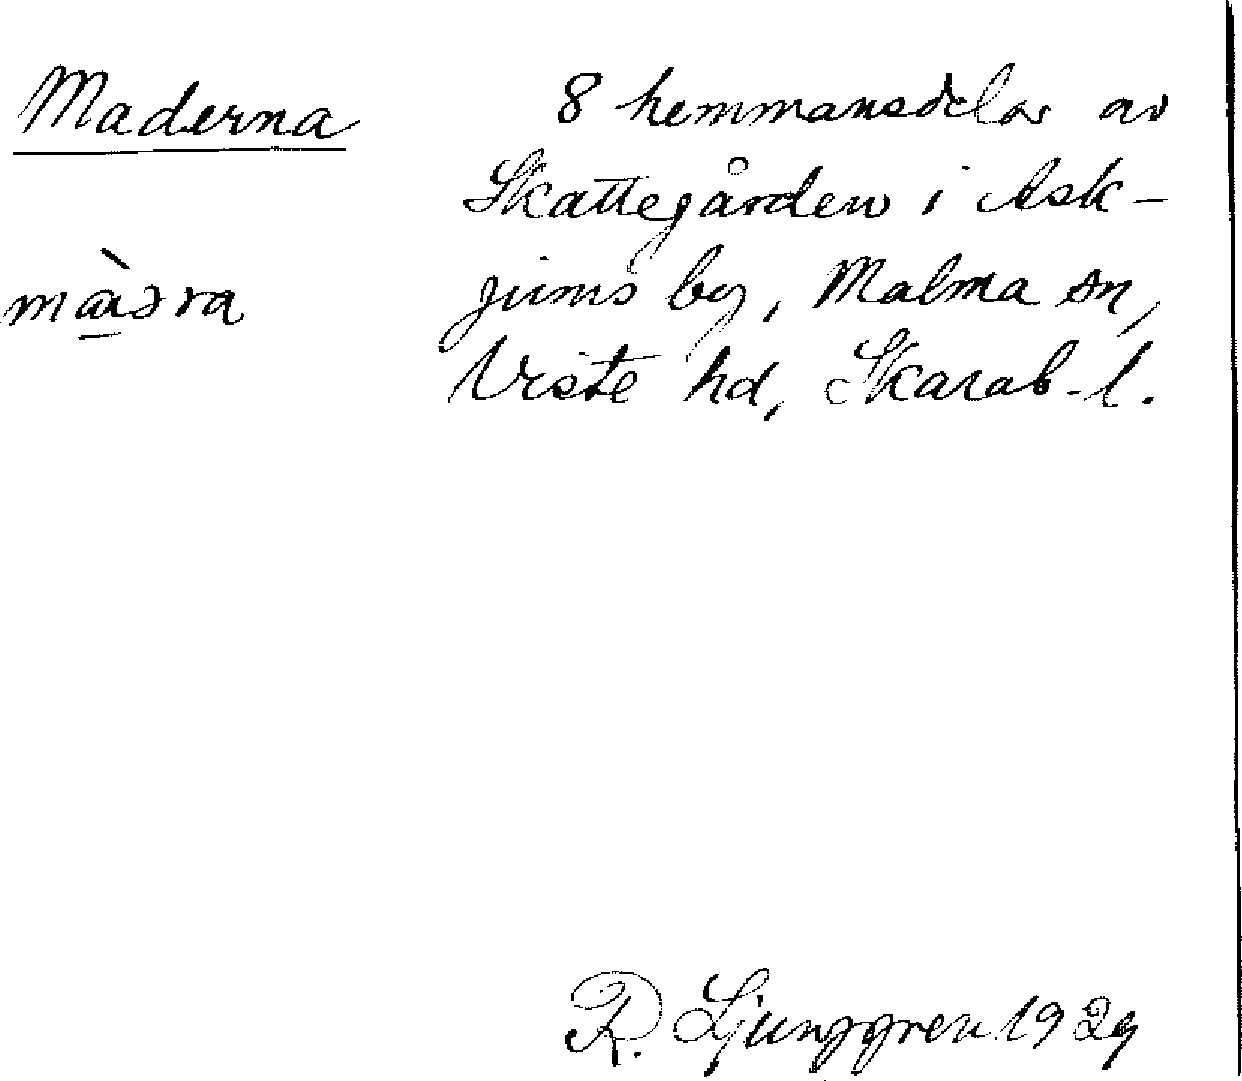 Maderna
8 hemmansdelar av
Skattegården i Ask-
jums by, Malma sn,
Viste hd, Skarab-l.
R. Ljunggren 1929